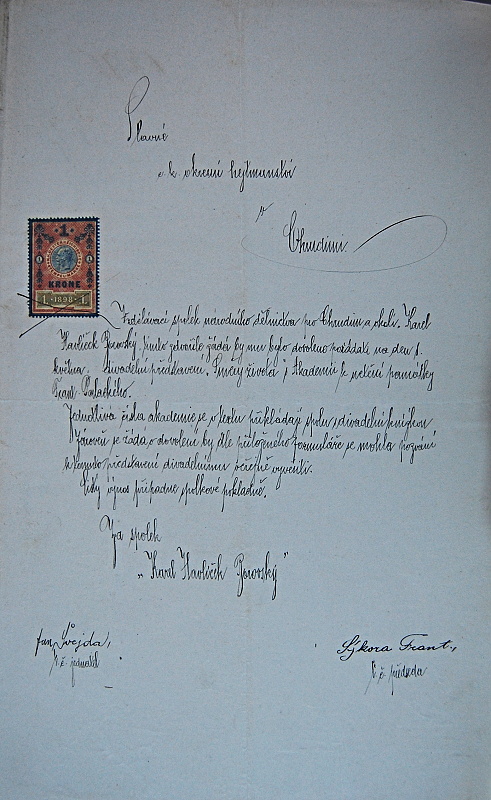 Slavné
c k okresní hejtmanství
v
Chrudimi
1
1 1
KRONE
1. 1898 1.
Vzdělávací spolek národního dělnictva pro Chrudim a okolí. Karel
Havlíček Borovský, tímto zdvořile žádá by mu bylo dovoleno pořádati na den 1.
května divadelní představení. Směry života i Akademii k uctění památky
Frant. Palackého.
Jednotlivá čísla akademie se v textu předkládají spolu s divadelní knihou
Zároveň se žádá, o dovolení by dle přiloženého formuláře se mohlo pozvání
k tomuto představení divadelnímu veřejně vyvěsiti.
Čistý výnos připadne spolkové pokladně.
Za spolek
„Karel Havlíček Borovský"
Jan Švejda,
t. č. jednatel
Sýkora Frant.,
t. č. předseda